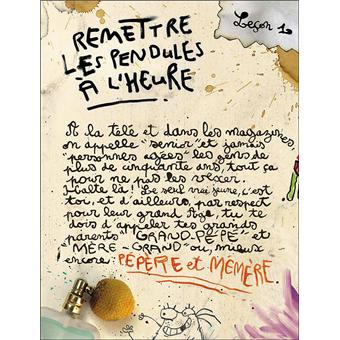 Leçon 1
REMETTRE
LES PENDULES
À L'HEURE
À la télé et dans les magazines,
on appelle "senior" et jamais
"personnes agées" les gens de
plus de cinquante ans, tout ça
pour ne pas les vexer.
Halte là ! Le seul vrai jeune, c'est
toi, et d'ailleurs, par respect
pour leur grand âge, tu te
dois d'appeler tes grands
parents "GRAND-PÉPÉ" et
MÈRE-GRAND" ou, mieux
encore : PÉPÈRE et MÉMÈRE.